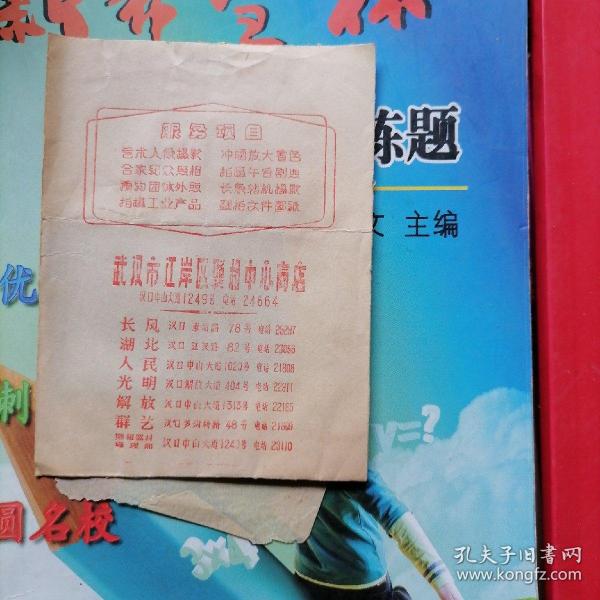 练题
主编
优
刺
圆名校
y=?
服务项目
艺术人像摄影 冲晒放大着色
合家纪念照相 拍摄平台剧通
拍摄工业产品
武汉市江岸区照相中心商店
汉口中山大道1249号 电话 24664
长风 汉口 78号 电话 25297
湖北 汉口 江汉路 82号 电话 23056
人民 汉口中山大道1020号 电话 21808
光明 汉口解放大道404号 电话 22811
解放 汉口中山大道1313号 电话 22165
群艺 48号 电话
照相器材
修理部 汉口中山大道1249号 电话 23110
孔夫子旧书网
www.kongfz.com